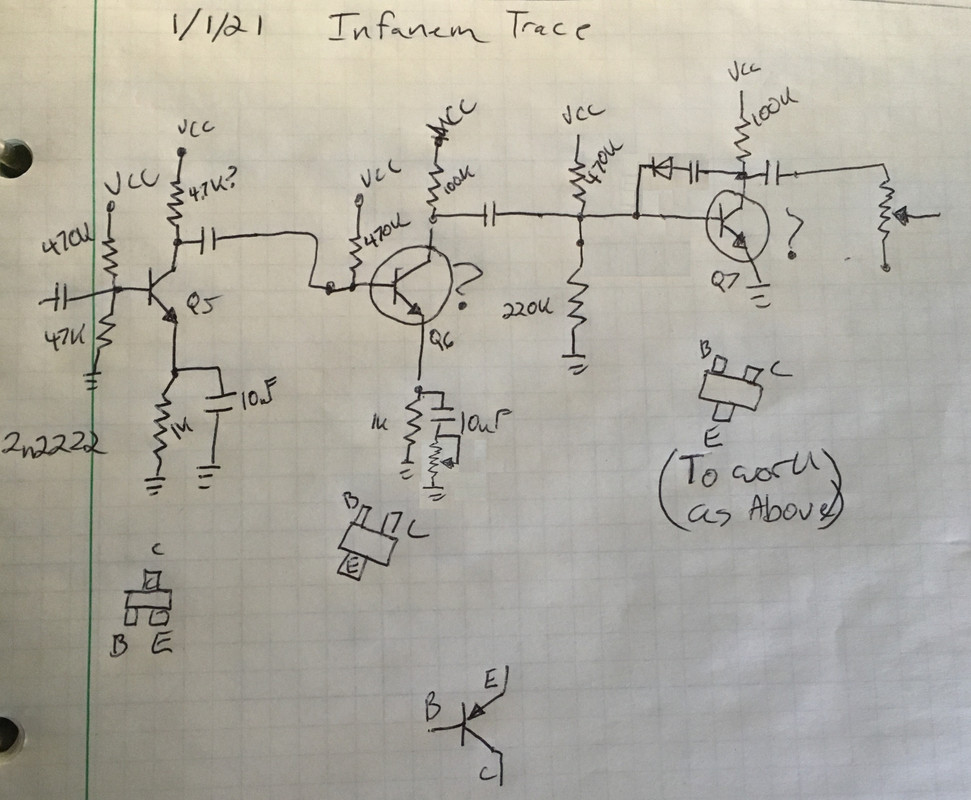 1/1/21 Infanem Trace
VCC
VCC
47K?
470K
47K
Q5
1K
10uF
2n2222
C
B E
VCC
100K
VCC
470K
?
Q6
1K
10uF
B
C
E
VCC
470K
220K
VCC
100K
?
Q7
B
C
E
(To work
as Above)
E
B
C